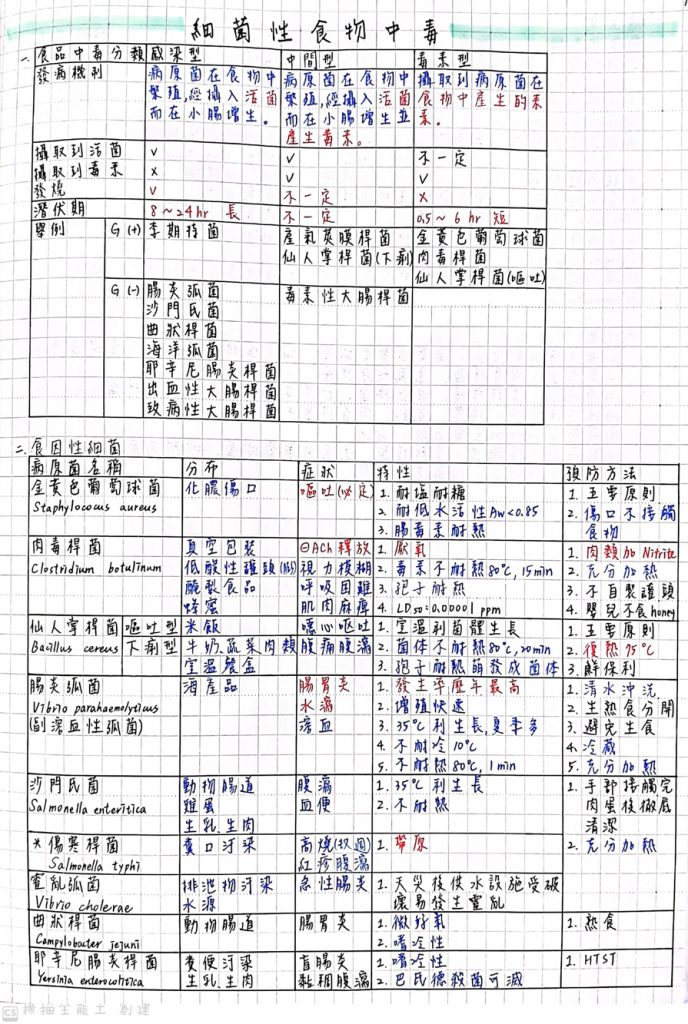 細菌性食物中毒
一、食品中毒分類 感染型 中間型 毒素型
發病機制 病原菌在食物中 病原菌在食物中 攝取到病原菌在
繁殖,經攝入活菌 繁殖,經攝入活菌 食物中產生的毒
而在小腸增生。 而在小腸增生並 素。
產生毒素。
攝取到活菌 v v 不一定
攝取到毒素 x v v
發燒 v 不一定 x
潛伏期 8~24hr 長 不一定 0.5~6hr 短
舉例 G(+) 李斯特菌 產氣莢膜桿菌 金黃色葡萄球菌
仙人掌桿菌(下痢) 肉毒桿菌
仙人掌桿菌(嘔吐)
G(-) 腸炎弧菌 毒素性大腸桿菌
沙門氏菌
曲狀桿菌
海洋弧菌
耶辛尼腸炎桿菌
出血性大腸桿菌
致病性大腸桿菌
二、食因性細菌
病原菌名稱 分布 症狀 特性 預防方法
金黃色葡萄球菌 化膿傷口 嘔吐(必定) 1. 耐塩耐糖 1. 五要原則
Staphylococus aureus 2. 耐低水活性Aw<0.85 2. 傷口不接觸
3. 腸毒素耐熱 食物
肉毒桿菌 真空包裝 ⊖ACh釋放 1. 厭氧 1. 肉類加Nitrite
Clostridium botulinum 低酸性罐頭 視力模糊 2. 毒素不耐熱80°C, 15min 2. 充分加熱
醃製食品 呼吸困難 3. 孢子耐熱 3. 不自製罐頭
蜂蜜 肌肉麻痺 4. LD50:0.00001 ppm 4. 嬰兒不食honey
仙人掌桿菌 嘔吐型 米飯 噁心嘔吐 1. 室溫利菌體生長 1. 五要原則
Bacillus cereus 下痢型 牛奶.蔬菜肉類 腹痛腹瀉 2. 菌体不耐熱80°C, 20min 2. 復熱75°C
室溫餐盒 3. 孢子耐熱萌發成菌体 3. 鮮保利
腸炎弧菌 海產品 腸胃炎 1. 發生率歷年最高 1. 清水沖洗
Vibrio parahaemolyticus 水瀉 2. 增殖快速 2. 生熟食分開
(副溶血性弧菌) 溶血 3. 35°C利生長,夏季多 3. 避免生食
4. 不耐冷10°C 4. 冷藏
5. 不耐熱80°C, 1min 5. 充分加熱
沙門氏菌 動物腸道 腹瀉 1. 35°C利生長 1. 手部接觸完
Salmonella enteritica 雞蛋 血便 2. 不耐熱 肉蛋後徹底
生乳.生肉 清潔
*傷寒桿菌 糞口汙染 高燒(數週) 1. 帶原 2. 充分加熱
Salmonella typhi 紅疹腹瀉
霍亂弧菌 排泄物汙染 急性腸炎 1. 天災後供水設施受破
Vibrio cholerae 水源 壞易發生霍亂
曲狀桿菌 動物腸道 腸胃炎 1. 微好氧 1. 熟食
Campylobacter jejuni 2. 嗜冷性
耶辛尼腸炎桿菌 糞便汙染 盲腸炎 1. 嗜冷性 1. HTST
Yersinia enterocolitica 生乳.生肉 黏稠腹瀉 2. 巴氏德殺菌可滅
CS 掃描全能王 創建